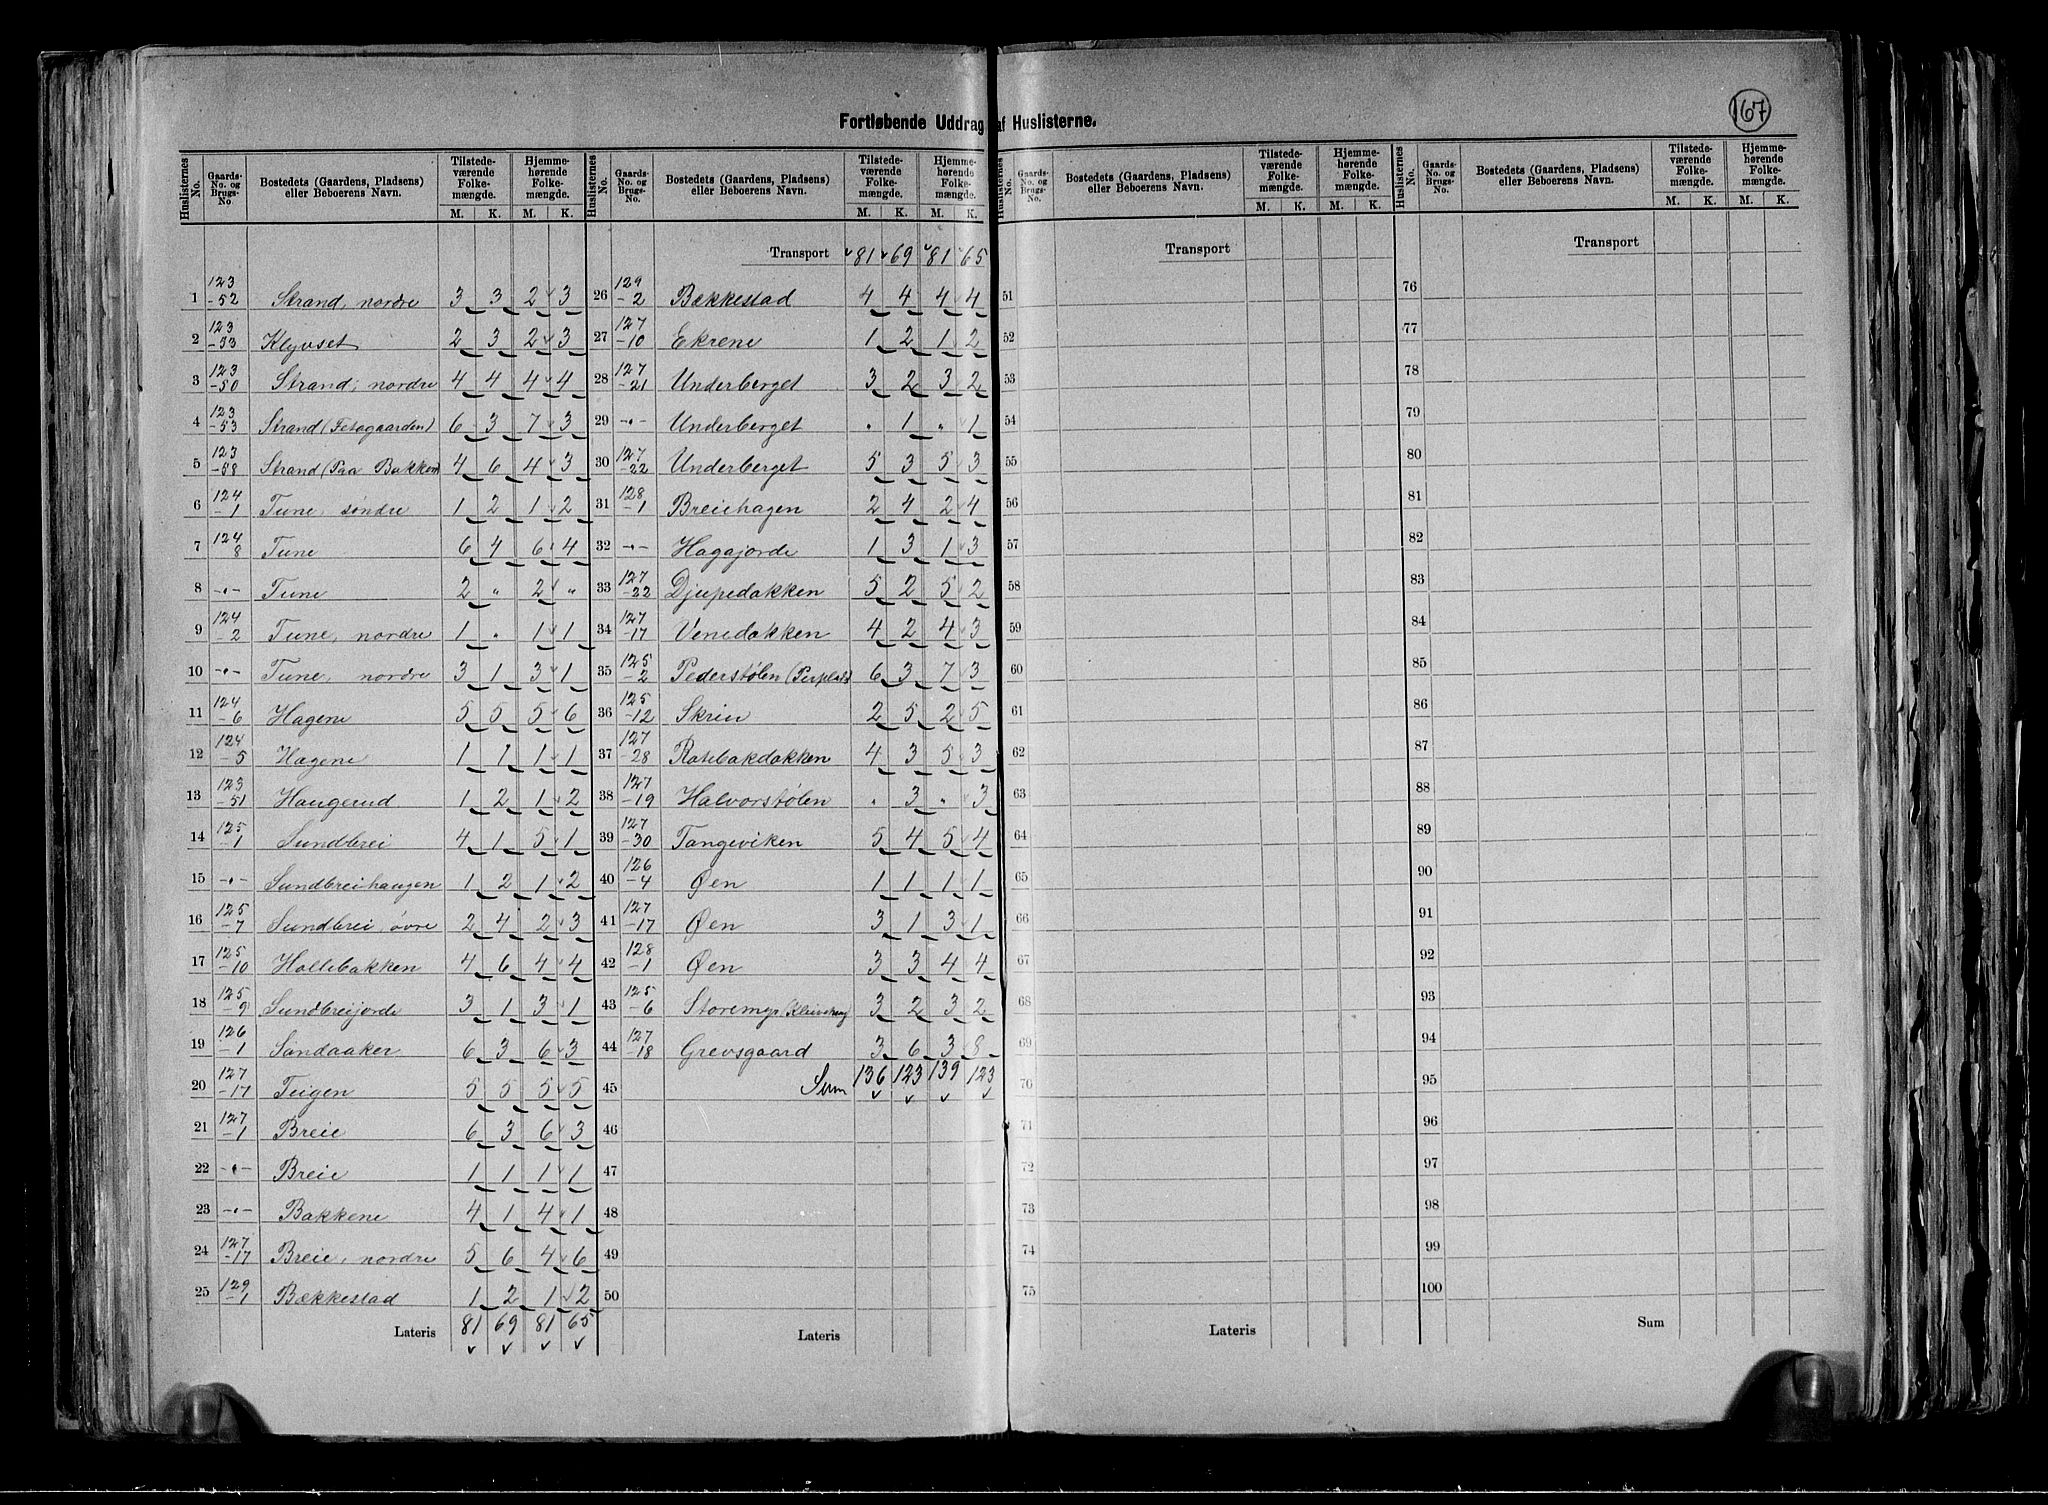 167
Fortløbende Uddrag af Huslisterne.
Huslisternes No. | Gaards-No. og Brugs-No. | Bostedets (Gaardens, Pladsens) eller Beboerens Navn. | Tilstedeværende Folkemængde. M. K. | Hjemmehørende Folkemængde. M. K.
1 123-52 Strand, nordre 3 3 2 3
2 123-33 Klyvset 2 3 2 3
3 123-50 Strand, nordre 4 4 4 4
4 123-53 Strand (Fetogaarden) 6 3 7 3
5 123-58 Strand (Paa Bakken) 4 6 4 3
6 124-1 Tune, søndre 1 2 1 2
7 124-8 Tune 6 4 6 4
8 -"- Tune 2 " 2 "
9 124-2 Tune, nordre 1 " 1 1
10 -"- Tune, nordre 3 1 3 1
11 124-6 Hagene 5 5 5 6
12 124-5 Hagene 1 1 1 1
13 123-51 Haugerud 1 2 1 2
14 125-1 Sundbrei 4 1 5 1
15 -"- Sundbreihaugen 1 2 1 2
16 125-7 Sundbrei, øvre 2 4 2 3
17 125-10 Hollebakken 4 6 4 4
18 125-9 Sundbreijorde 3 1 3 1
19 126-1 Sandaaker 6 3 6 3
20 127-17 Teigen 5 5 5 5
21 127-1 Breie 6 3 6 3
22 -"- Breie 1 1 1 1
23 -"- Bakkene 4 1 4 1
24 127-17 Breie, nordre 5 6 4 6
25 129-1 Bækkestad 1 2 1 2
Lateris 81 69 81 65
Huslisternes No. | Gaards-No. og Brugs-No. | Bostedets (Gaardens, Pladsens) eller Beboerens Navn. | Tilstedeværende Folkemængde. M. K. | Hjemmehørende Folkemængde. M. K.
Transport 81 69 81 65
26 129-2 Bækkestad 4 4 4 4
27 127-10 Ekrene 1 2 1 2
28 127-21 Underberget 3 2 3 2
29 -"- Underberget " 1 " 1
30 127-22 Underberget 5 3 5 3
31 128-1 Breiehagen 2 4 2 4
32 -"- Hagajorde 1 3 1 3
33 127-22 Djupedokken 5 2 5 2
34 127-17 Venedokken 4 2 4 3
35 125-2 Pederstølen (Perplads) 6 3 7 3
36 125-12 Skrin 2 5 2 5
37 127-28 Rotebakdokken 4 3 5 3
38 127-19 Halvorstølen " 3 " 3
39 127-30 Tangeviken 5 4 5 4
40 126-4 Øen 1 1 1 1
41 127-17 Øen 3 1 3 1
42 128-1 Øen 3 3 4 4
43 125-6 Storemyr 3 2 3 2
44 127-18 Grevsgaard 3 6 3 8
45 Sum 136 123 139 123
46
47
48
49
50
Lateris
Huslisternes No. | Gaards-No. og Brugs-No. | Bostedets (Gaardens, Pladsens) eller Beboerens Navn. | Tilstedeværende Folkemængde. M. K. | Hjemmehørende Folkemængde. M. K.
Transport
51
52
53
54
55
56
57
58
59
60
61
62
63
64
65
66
67
68
69
70
71
72
73
74
75
Lateris
Huslisternes No. | Gaards-No. og Brugs-No. | Bostedets (Gaardens, Pladsens) eller Beboerens Navn. | Tilstedeværende Folkemængde. M. K. | Hjemmehørende Folkemængde. M. K.
Transport
76
77
78
79
80
81
82
83
84
85
86
87
88
89
90
91
92
93
94
95
96
97
98
99
100
Sum